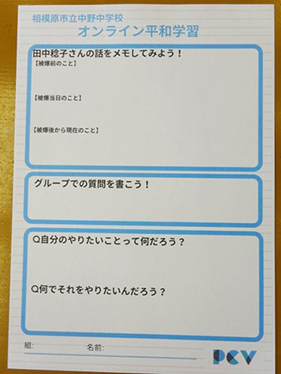 相模原市立中野中学校
オンライン平和学習
田中稔子さんの話をメモしてみよう！
【被爆前のこと】
【被爆当日のこと】
【被爆後から現在のこと】
グループでの質問を書こう！
Q自分のやりたいことって何だろう？
Q何でそれをやりたいんだろう？
組: 名前:
PCV